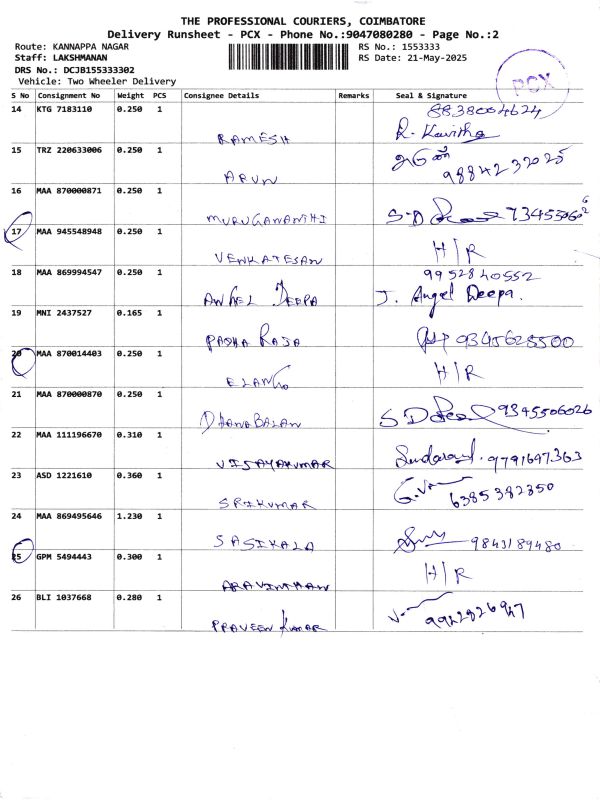 THE PROFESSIONAL COURIERS, COIMBATORE
Delivery Runsheet - PCX - Phone No.:9047080280 - Page No.:2
Route: KANNAPPA NAGAR RS No.: 1553333
Staff: LAKSHMANAN RS Date: 21-May-2025
DRS No.: DCJB155333302
Vehicle: Two Wheeler Delivery
PCX
S No Consignment No Weight PCS Consignee Details Remarks Seal & Signature
14 KTG 7183110 0.250 1 RAMESH 8838004624
R. Kavitha
15 TRZ 220633006 0.250 1 ARUN 9884232025
16 MAA 870000871 0.250 1 MURUGANANTHI S.D
17 MAA 945548948 0.250 1 VENKATESAN H/R
18 MAA 869994547 0.250 1 ANGEL DEEPA 9952840552
J. Angel Deepa.
19 MNI 2437527 0.165 1 PADHA RAJA 9345628500
20 MAA 870014403 0.250 1 ELANGO H/R
21 MAA 870000870 0.250 1 DHANABALAN S D 9345506026
22 MAA 111196670 0.310 1 VIJAYAKUMAR 9791697363
23 ASD 1221610 0.360 1 SRIKUMAR 6385382350
24 MAA 869495646 1.230 1 SASIKALA 9843189480
25 GPM 5494443 0.300 1 ARAVINTHAN H/R
26 BLI 1037668 0.280 1 PRAVEEN KUMAR